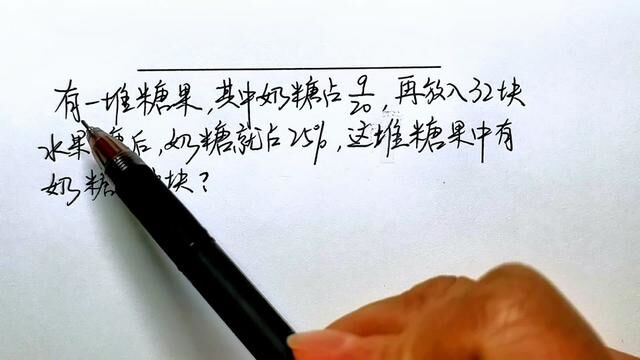 有一堆糖果,其中奶糖占9/20,再放入32块
水果 后,奶糖就占25%,这堆糖果中有
奶糖 块?